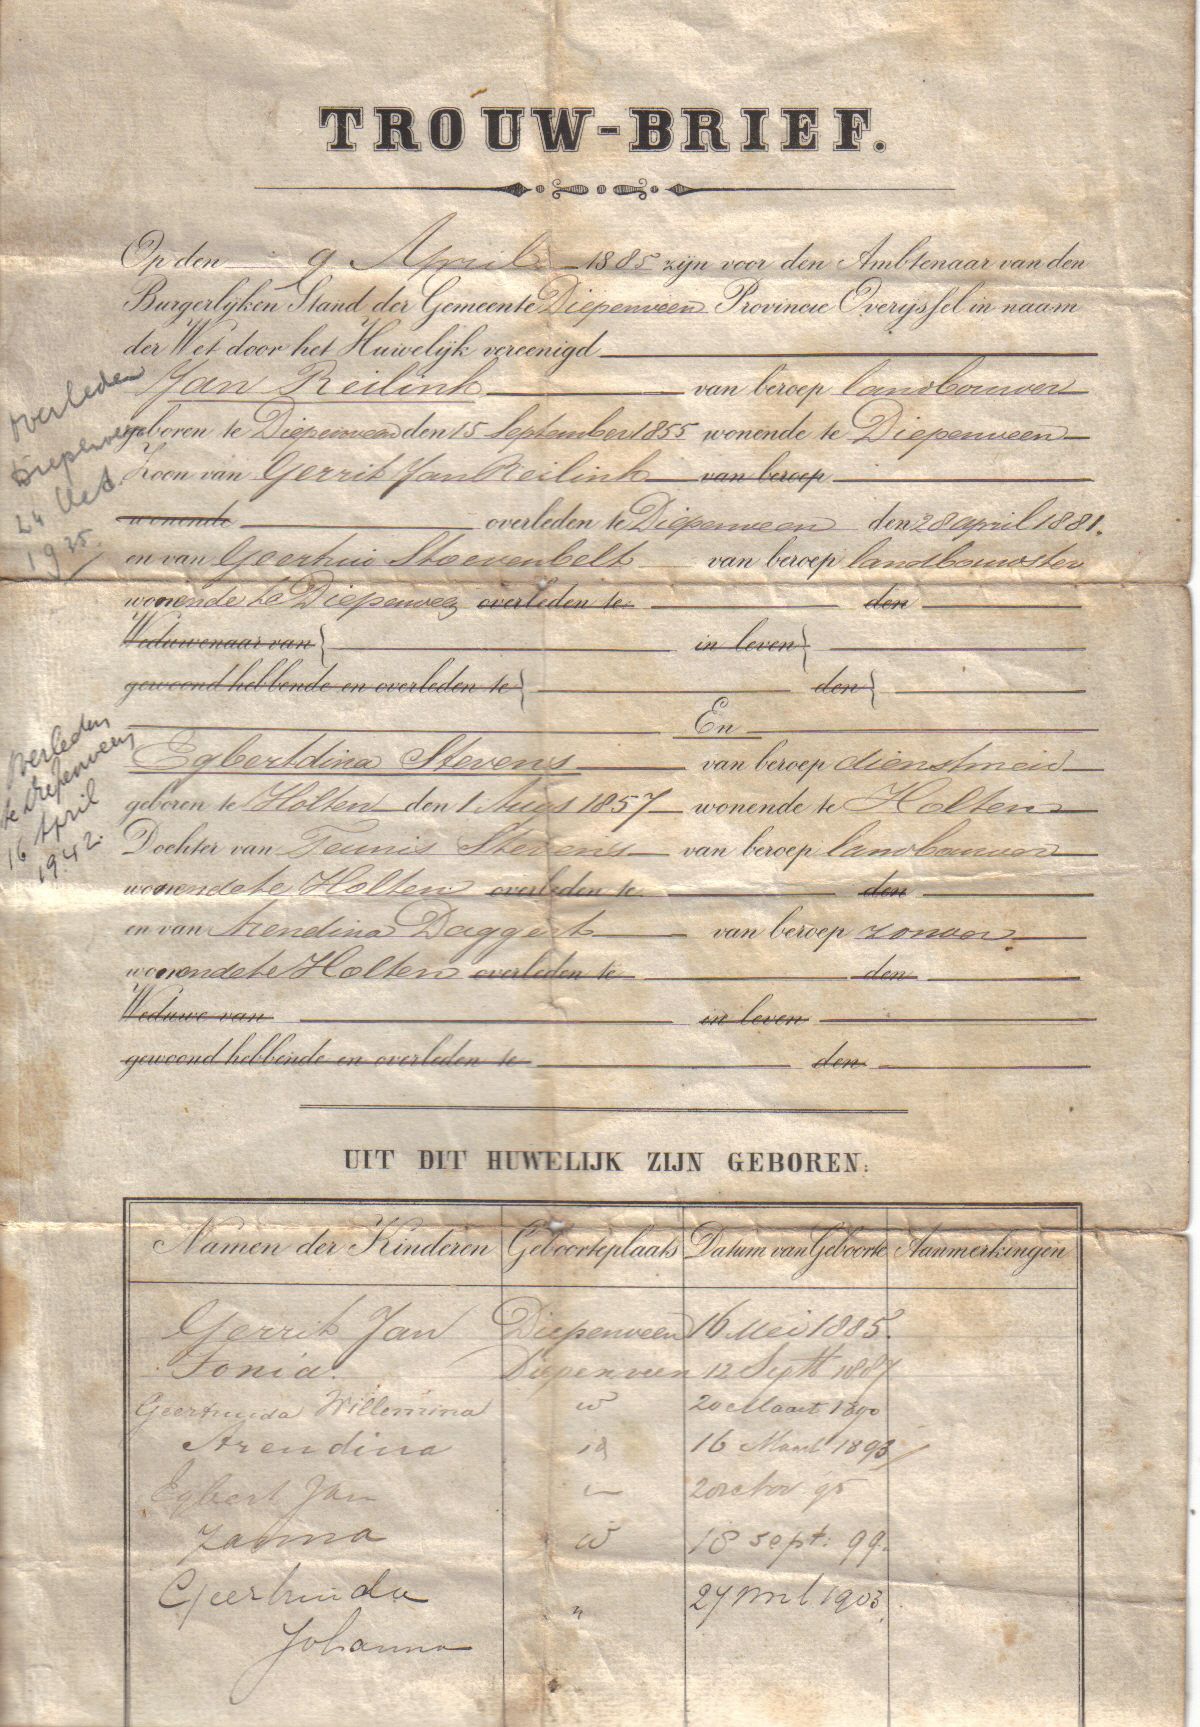 TROUW-BRIEF.
Op den 9 April 1885 zijn voor den Ambtenaar van den
Burgerlijken Stand der Gemeente Diepenveen Provincie Overijssel in naam
der Wet door het Huwelijk vereenigd
Jan Reilink van beroep landbouwer
geboren te Diepenveen den 15 September 1855 wonende te Diepenveen
Zoon van Gerrit Jan Reilink van beroep
wonende overleden te Diepenveen den 28 april 1881.
en van Geertrui Stoevenbelt van beroep landbouwster
wonende te Diepenveen overleden te den
Weduwenaar van in leven
gewoond hebbende en overleden te den
En
Egbertdina Stevens van beroep dienstmeid
geboren te Holten den 1 Augs 1857 wonende te Holten
Dochter van Teunis Stevens van beroep landbouwer
wonende te Holten overleden te den
en van Arendina Daggert van beroep zonder
wonende te Holten overleden te den
Weduwe van in leven
gewoond hebbende en overleden te den
overleden
Diepenveen
24 Oct.
1925.
overleden
te Diepenveen
16 April
1942.
UIT DIT HUWELIJK ZIJN GEBOREN:
Namen der Kinderen Geboorteplaats Datum van Geboorte Aanmerkingen
Gerrit Jan Diepenveen 16 Mei 1885.
Tonia. Diepenveen 12 Sept 1887
Geertruida Willemina 20 Maart 1890
Arendina id 16 Maart 1893
Egbert Jan 95
Janna 18 sept. 99.
Geertruida " 27 1903.
Johanna